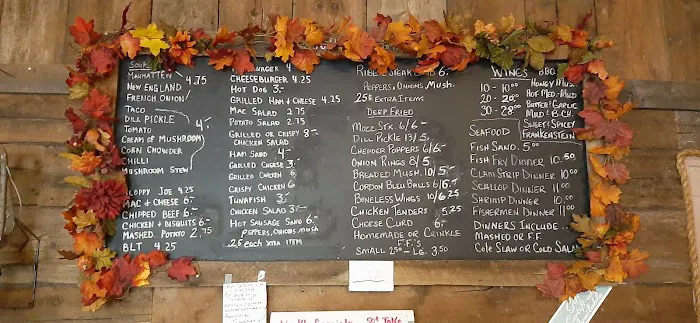 SOUPS
MANHATTEN
NEW ENGLAND
FRENCH ONION
4.75
TACO
DILL PICKLE
TOMATO
CREAM OF MUSHROOM
CORN CHOWDER
CHILLI
MUSHROOM STEW
4.-
SLOPPY JOE 4.25
MAC & CHEESE 6-
CHIPPED BEEF 6-
CHICKEN & BISQUITS 6-
MASHED POTATO 2.75
BLT 4.25
BURGER 4
CHEESEBURGER 4.25
HOT DOG 3.-
GRILLED HAM & CHEESE 4.25
MAC SALAD 2.75
POTATO SALAD 2.75
GRILLED OR CRISPY 8-
CHICKEN SALAD
HAM SAND 4-
GRILLED CHEESE 3.-
GRILLED CHICKEN 6
CRISPY CHICKEN 6
TUNAFISH 3.-
CHICKEN SALAD 3.-
HOT SAUSAGE SAND 6.-
PEPPERS, ONIONS, MUSH
.25 each XTRA ITEM
RIBEYE STEAK 6.-
PEPPERS, ONIONS, MUSH.
.25¢ EXTRA ITEMS
DEEP FRIED
MOZZ STK 6/6-
DILL PICKLE 13/5
CHEDDER POPPERS 6/6-
ONION RINGS 8/5
BREADED MUSH. 10/5-
CORDON BLEU BALLS 6/6.-
BONELESS WINGS 10/6.25
CHICKEN TENDERS 5.25
CHEESE CURD 6-
HOMEMADE OR CRINKLE
F.F.'S
SMALL 2.50 - LG. 3.50
WINGS
10 - 10.00
20 - 20.00
30 - 28.00
BBQ
HONEY
HOT, MED, MILD
BUTTER GARLIC
MILD B.C.H.
SWEET SPICEY
FRANKENSTEIN
SEAFOOD
FISH SAND. 5.00
FISH FRY DINNER 10.50
CLAM STRIP DINNER 10.00
SCALLOP DINNER 11.00
SHRIMP DINNER 10.00
FISHERMEN DINNER 11.00
DINNERS INCLUDE..
MASHED OR F.F.
COLE SLAW OR COLD SALAD